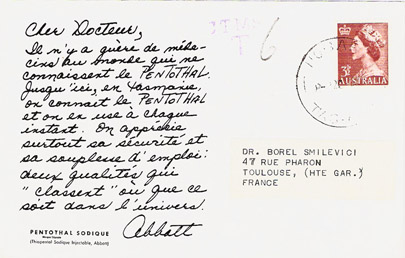 Cher Docteur,
Il n'y a guère de méde-
cins au monde qui ne
connaissent le PENTOTHAL.
Jusqu'ici, en Tasmanie,
on connait le PENTOTHAL
et on en use à chaque
instant. On apprécie
surtout sa sécurité et
sa souplesse d'emploi:
deux qualités qui
"classent" où que ce
soit dans l'univers.
Abbott
PENTOTHAL SODIQUE
(Thiopental Sodique Injectable, Abbott)
T
6
3½D
AUSTRALIA
DR. BOREL SMILEVICI
47 RUE PHARON
TOULOUSE, (HTE GAR.)
FRANCE